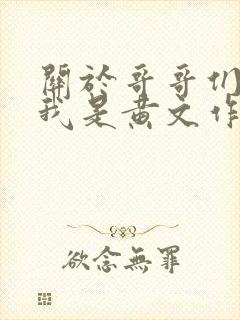 關於哥哥們
我是黃文作
欲念無罪